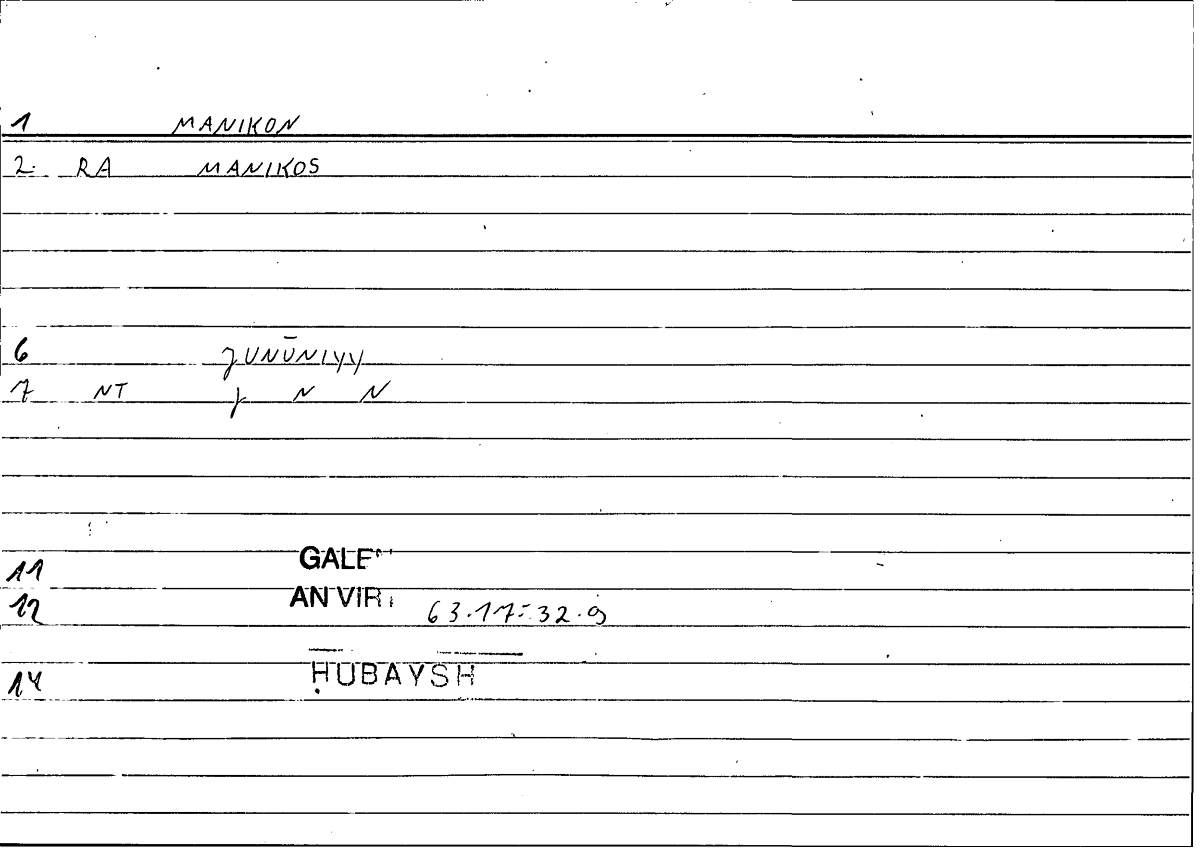 1 MANIKON
2. RA MANIKOS
6 JUNŪNIYY
7 NT J N N
11
12 AN VIR 63.17-32.9
14 ḤUBAYSH